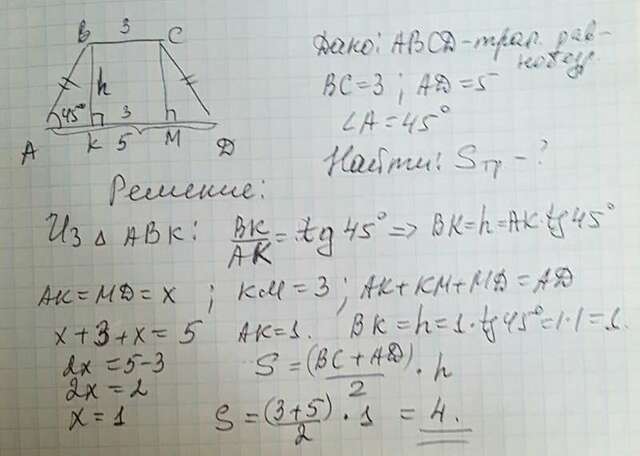 B 3 C
h
45° 3
A K 5 M D
Дано: ABCD-трап. рав-
нобедр.
BC=3; AD=5
∠A=45°
Найти: Sтр-?
Решение:
Из △ ABK: BK/AK = tg 45° => BK=h=AK·tg 45°
AK=MD=x ; KM=3; AK+KM+MD=AD
x+3+x=5 AK=1. BK=h=1·tg45°=1·1=1.
2x=5-3 S=(BC+AD)/2 · h
2x=2
x=1 S=(3+5)/2 · 1 = 4.